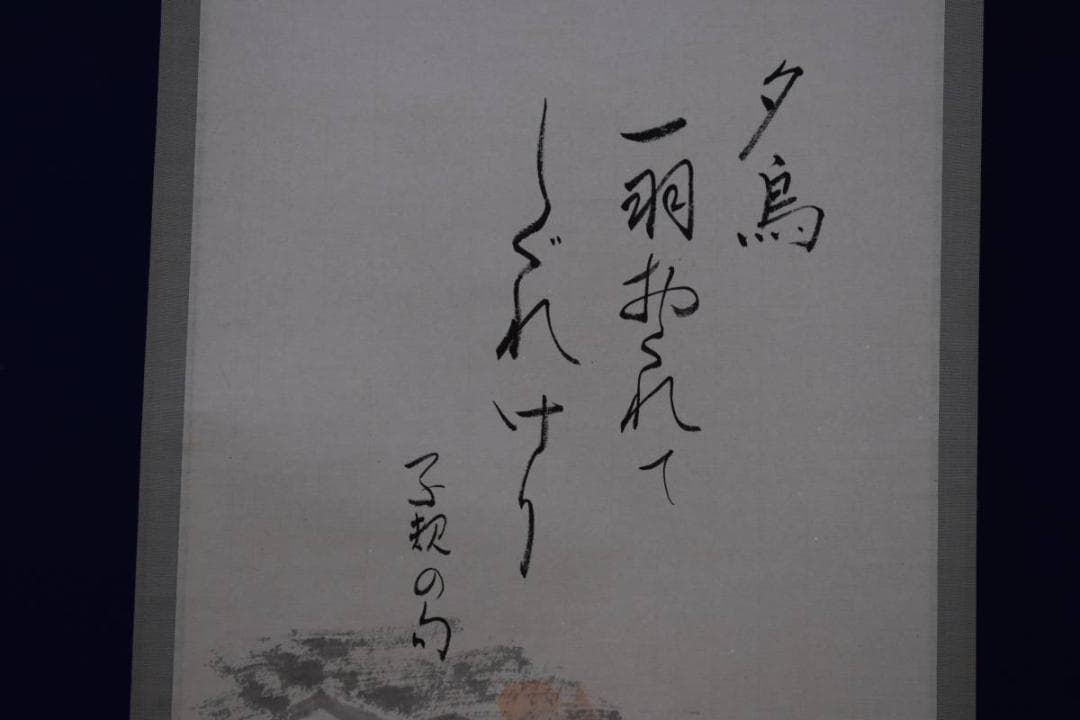 夕烏
一羽おくれて
しぐれけり
子規の句